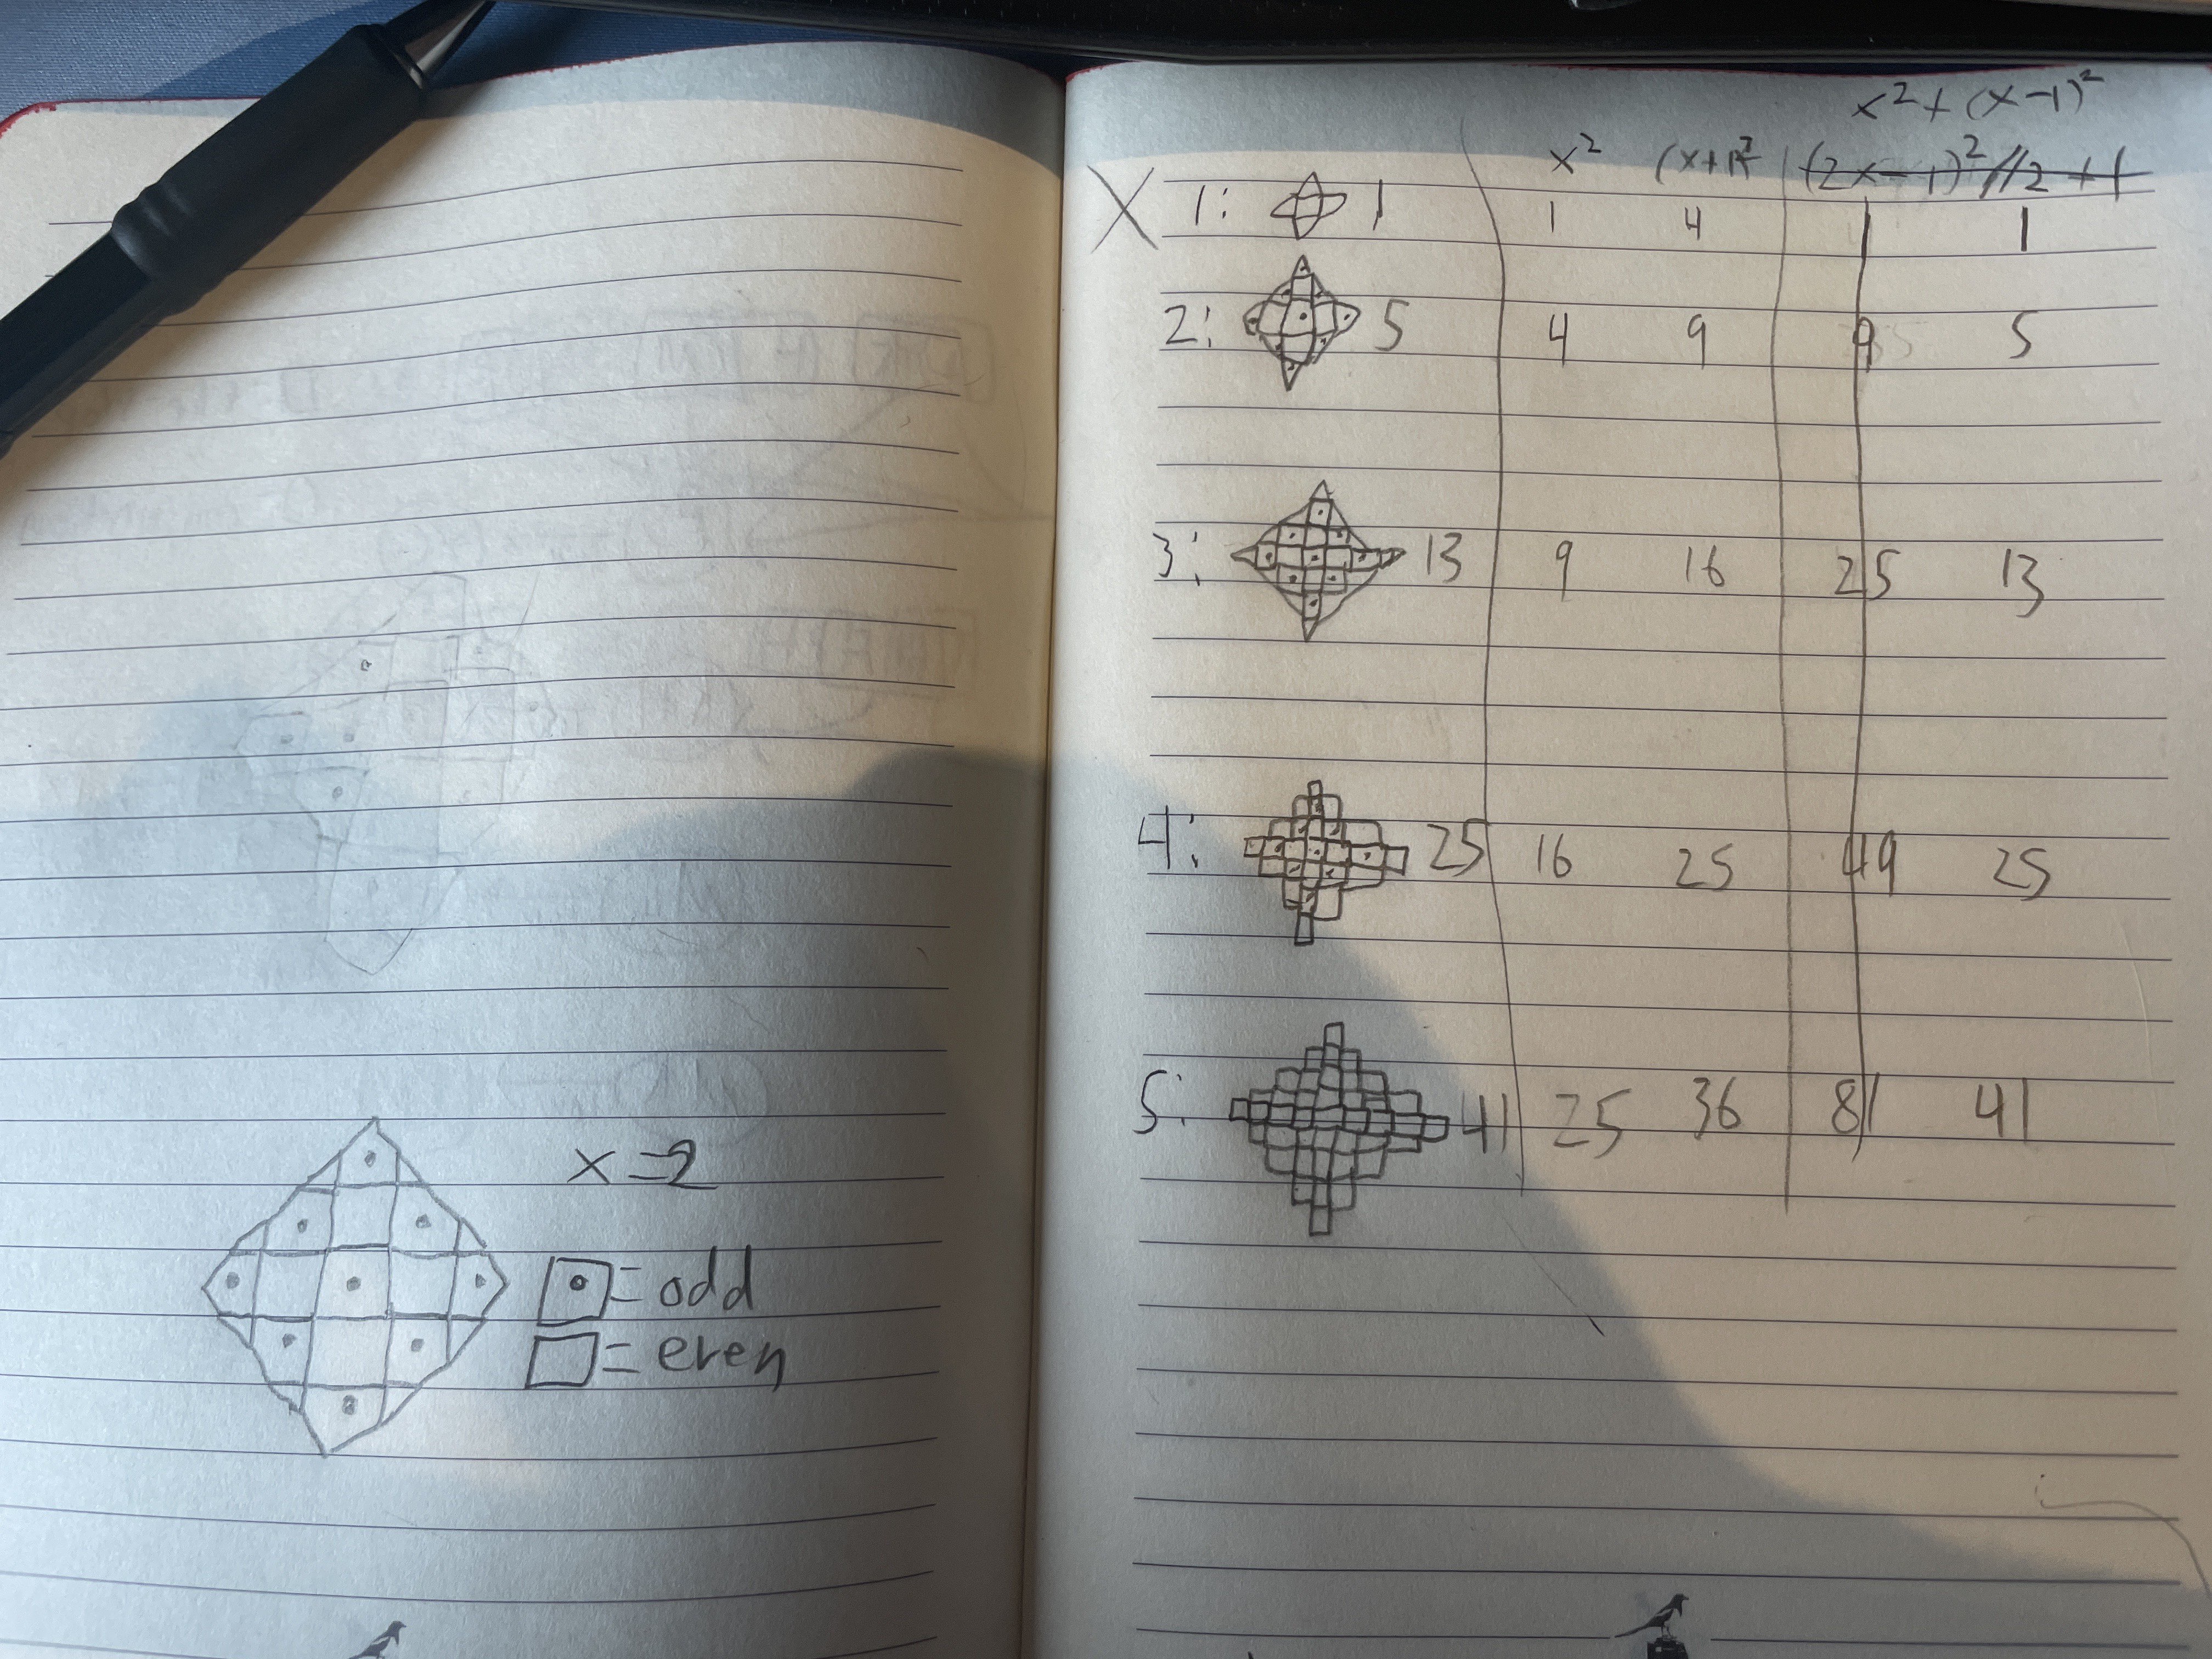 x = 2
= odd
= even
x² + (x-1)²
x² (x+1)² (2x-1)²//2 +1
X 1: 1 1 4 1 1
2: 5 4 9 9 5
3: 13 9 16 25 13
4: 25 16 25 49 25
5: 41 25 36 81 41